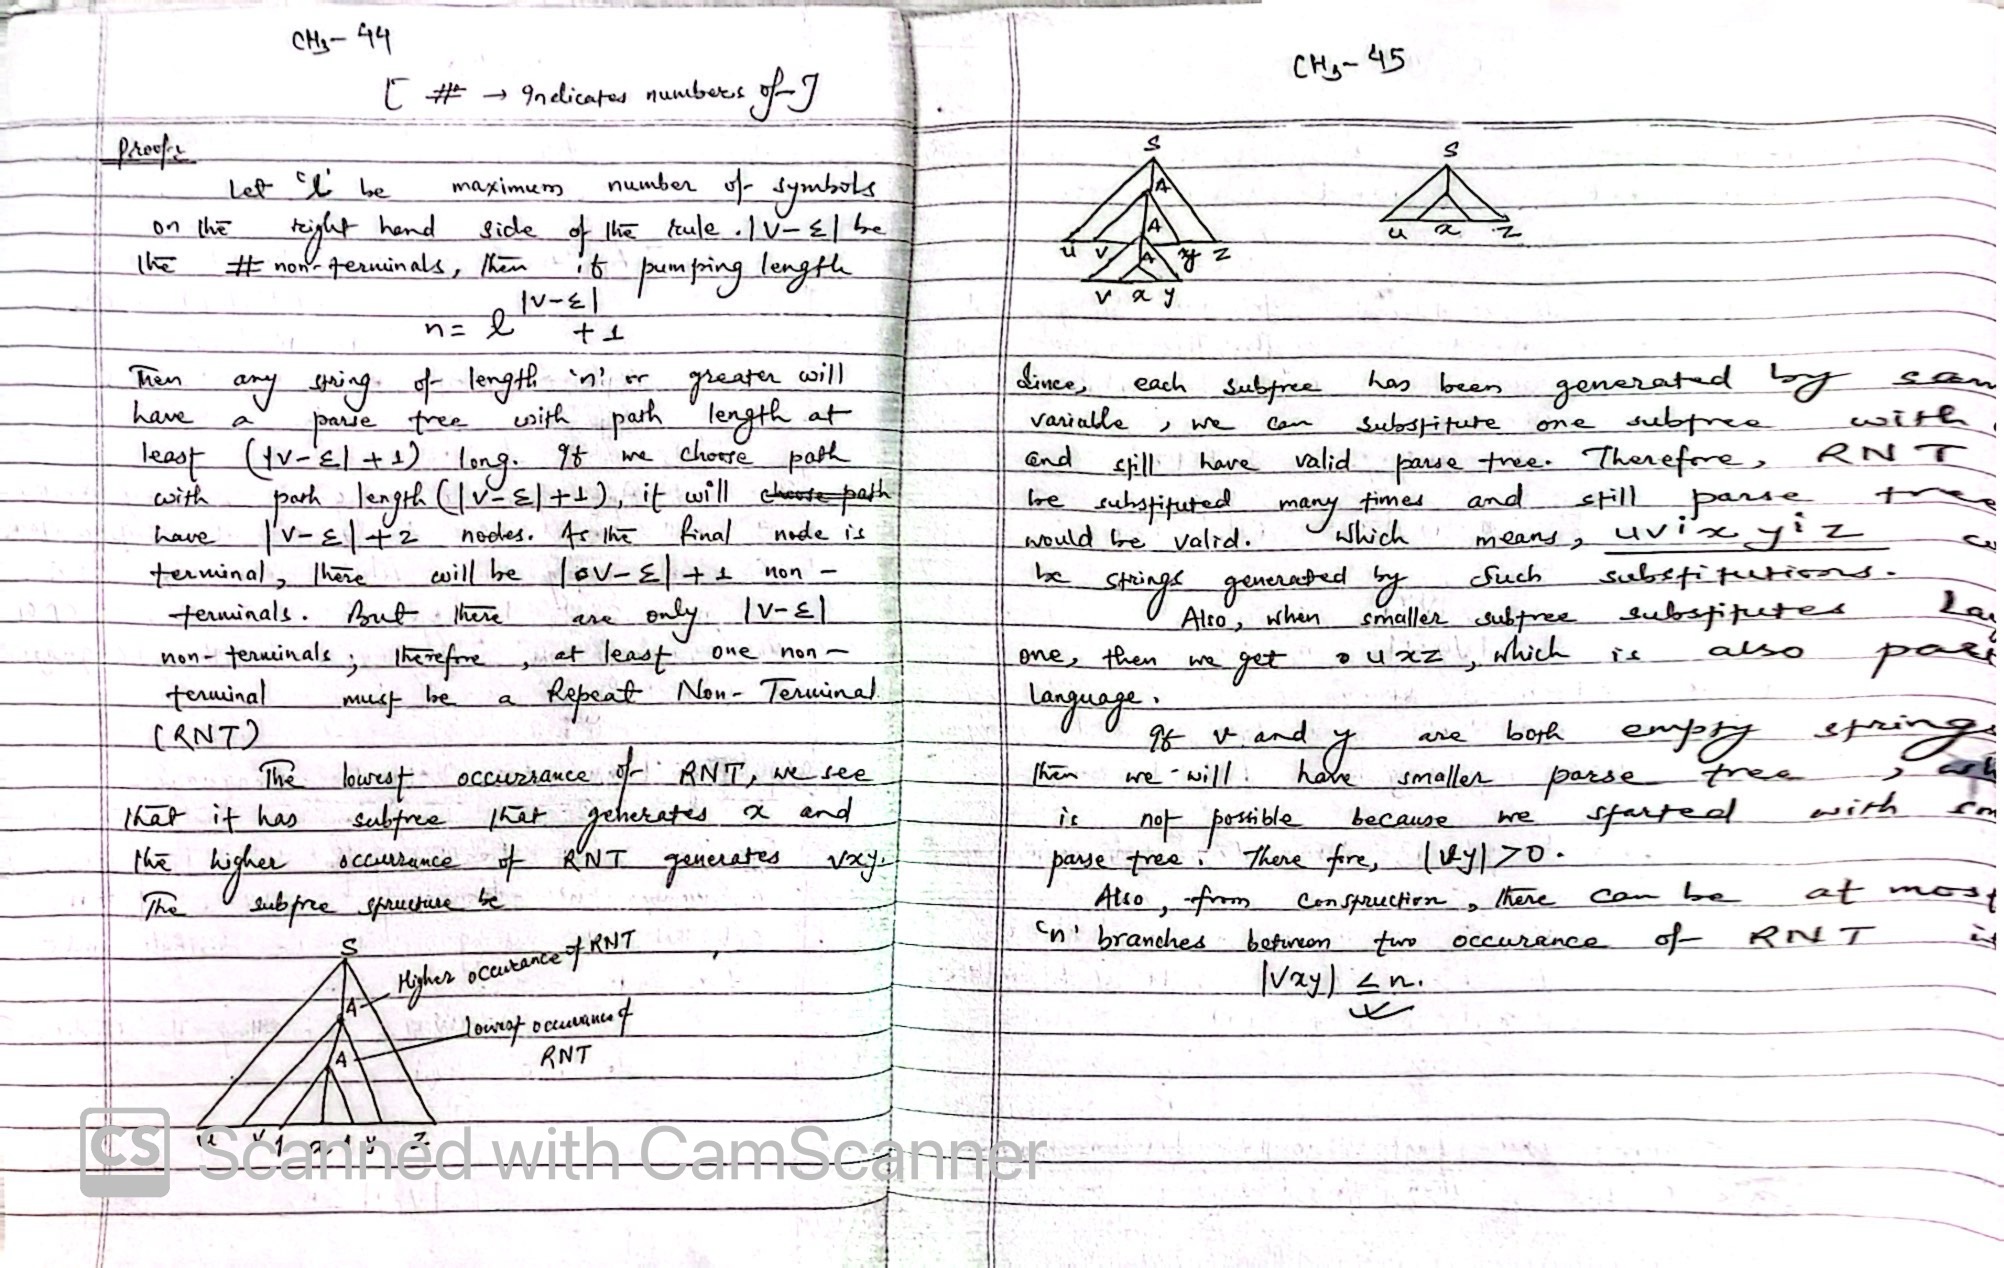 CH3- 44
[ # → Indicates numbers of ]
Proof:
Let 'l' be maximum number of symbols
on the right hand side of the rule. |V-Σ| be
the # non-terminals, then if pumping length
n = l^|V-Σ| + 1
Then any string of length 'n' or greater will
have a parse tree with path length at
least (|V-Σ|+1) long. If we choose path
with path length (|V-Σ|+1), it will choose path
have |V-Σ|+2 nodes. As the final node is
terminal, there will be |V-Σ|+1 non-
terminals. But there are only |V-Σ|
non-terminals; therefore, at least one non-
terminal must be a Repeat Non-Terminal
(RNT)
The lowest occurrance of RNT, we see
that it has subtree that generates x and
the higher occurrance of RNT generates vxy.
The subtree structure be
S
Higher occurance of RNT
A
Lowest occurance of
RNT
A
u v x y z
CH3- 45
S
A
A
u v y z
A
v x y
S
u x z
Since, each subtree has been generated by
variable, we can substitute one subtree with
and still have valid parse tree. Therefore, RNT
be substituted many times and still parse tree
would be valid. Which means, uv^i x y^i z
be strings generated by such substitutions.
Also, when smaller subtree substitutes
one, then we get uxz, which is also
language.
If v and y are both empty strings
then we will have smaller parse tree,
is not possible because we started with
parse tree. There fore, |vy|>0.
Also, from construction, there can be at most
'n' branches between two occurance of RNT
|vxy| ≤ n.
CS Scanned with CamScanner